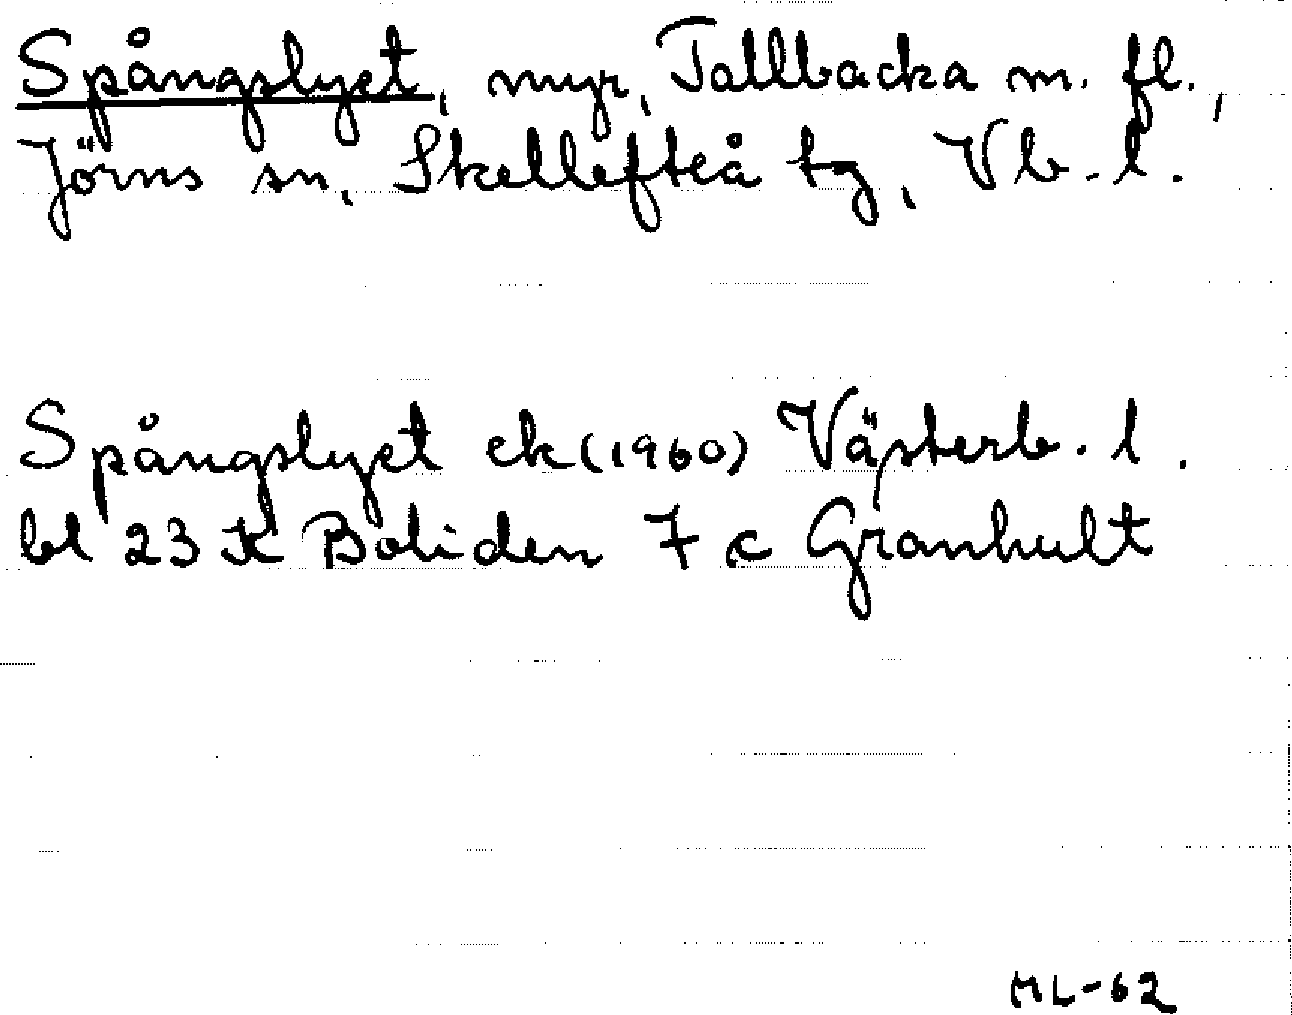 Spångslyet, myr, Tallbacka m. fl.,
Jörns sn, Skellefteå tg, Vb.l.
Spångslyet ek (1960) Västerb. l.
bl 23 K Boliden 7 c Granhult
ML-62